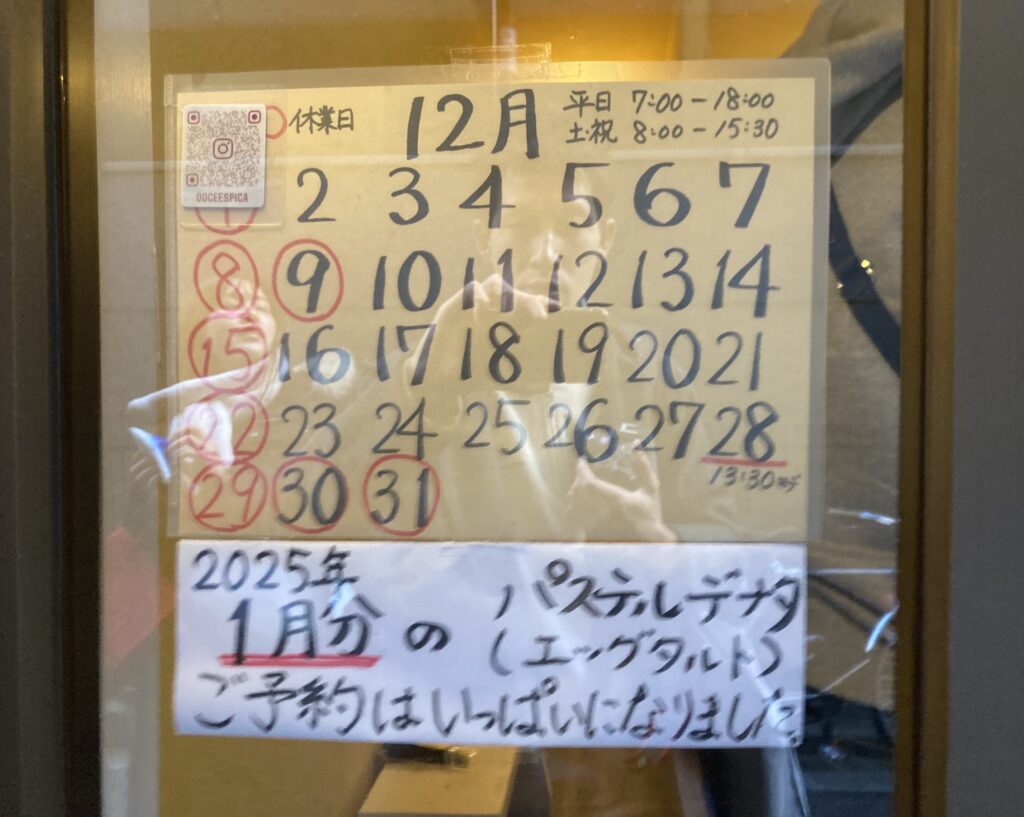 休業日 12月 平日 7:00-18:00
土・祝 8:00-15:30
DOCEESPIGA
1 2 3 4 5 6 7
8 9 10 11 12 13 14
15 16 17 18 19 20 21
22 23 24 25 26 27 28
13:30まで
29 30 31
2025年
1月分の パステルデナタ
(エッグタルト)
ご予約はいっぱいになりました。